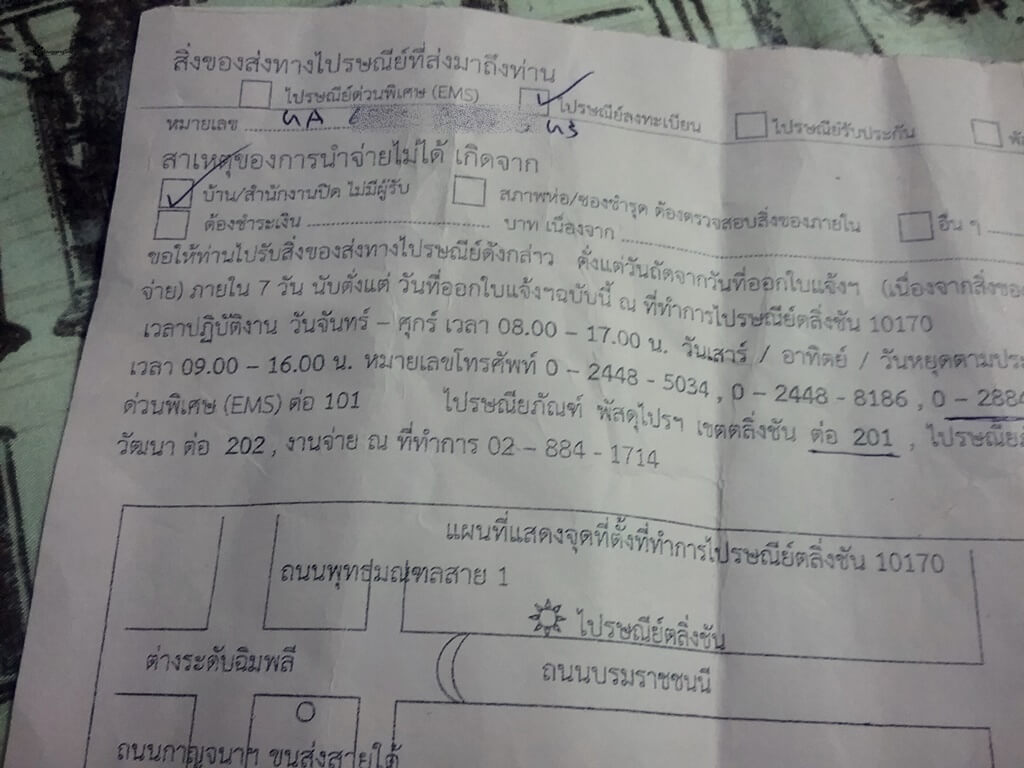 สิ่งของส่งทางไปรษณีย์ที่ส่งมาถึงท่าน
ไปรษณีย์ด่วนพิเศษ (EMS) ไปรษณีย์ลงทะเบียน ไปรษณีย์รับประกัน
หมายเลข
สาเหตุของการนำจ่ายไม่ได้ เกิดจาก
บ้าน/สำนักงานปิด ไม่มีผู้รับ สภาพห่อ/ซองชำรุด ต้องตรวจสอบสิ่งของภายใน อื่น ๆ
ต้องชำระเงิน บาท เนื่องจาก
ขอให้ท่านไปรับสิ่งของส่งทางไปรษณีย์ดังกล่าว ตั้งแต่วันถัดจากวันที่ออกใบแจ้งฯ (เนื่องจากสิ่งของ
จ่าย) ภายใน 7 วัน นับตั้งแต่ วันที่ออกใบแจ้งฯฉบับนี้ ณ ที่ทำการไปรษณีย์ตลิ่งชัน 10170
เวลาปฏิบัติงาน วันจันทร์ – ศุกร์ เวลา 08.00 – 17.00 น. วันเสาร์ / อาทิตย์ / วันหยุดตามประ
เวลา 09.00 – 16.00 น. หมายเลขโทรศัพท์ 0 – 2448 - 5034 , 0 – 2448 - 8186 , 0 – 2884
ด่วนพิเศษ (EMS) ต่อ 101 ไปรษณียภัณฑ์ พัสดุไปรฯ เขตตลิ่งชัน ต่อ 201 , ไปรษณีย
วัฒนา ต่อ 202 , งานจ่าย ณ ที่ทำการ 02 – 884 - 1714
แผนที่แสดงจุดที่ตั้งที่ทำการไปรษณีย์ตลิ่งชัน 10170
ถนนพุทธมณฑลสาย 1
ไปรษณีย์ตลิ่งชัน
ต่างระดับฉิมพลี ถนนบรมราชชนนี
ถนนกาญจนาฯ ขนส่งสายใต้